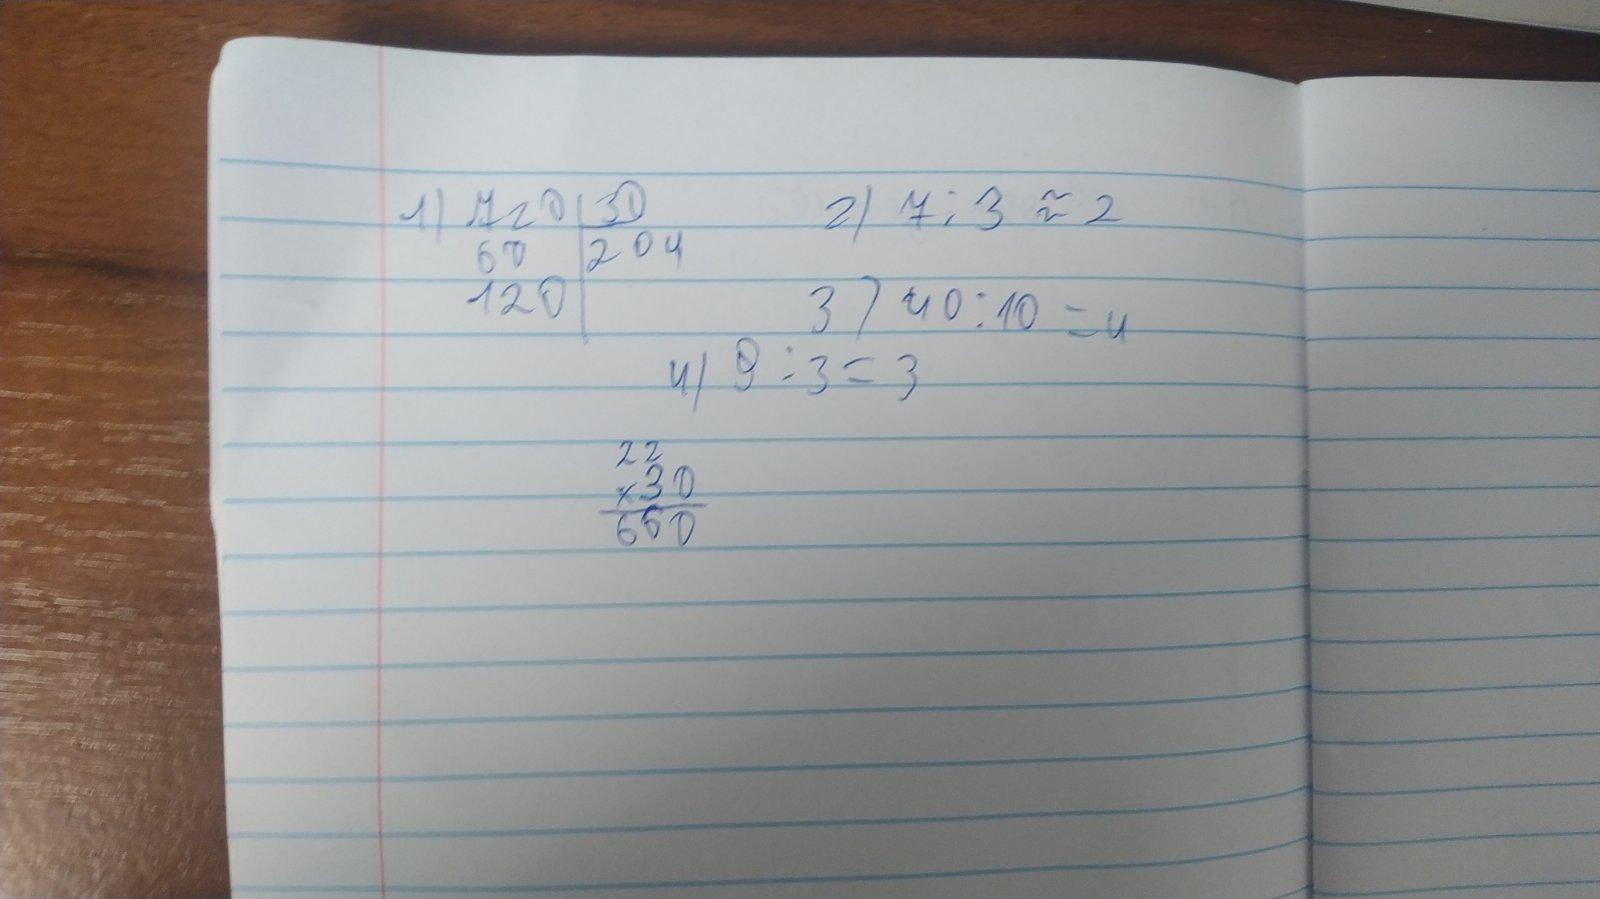 1) 720 | 30 2) 7 : 3 ≈ 2
60 | 204
120 3) 40 : 10 = 4
4) 9 : 3 = 3
22
× 30
660